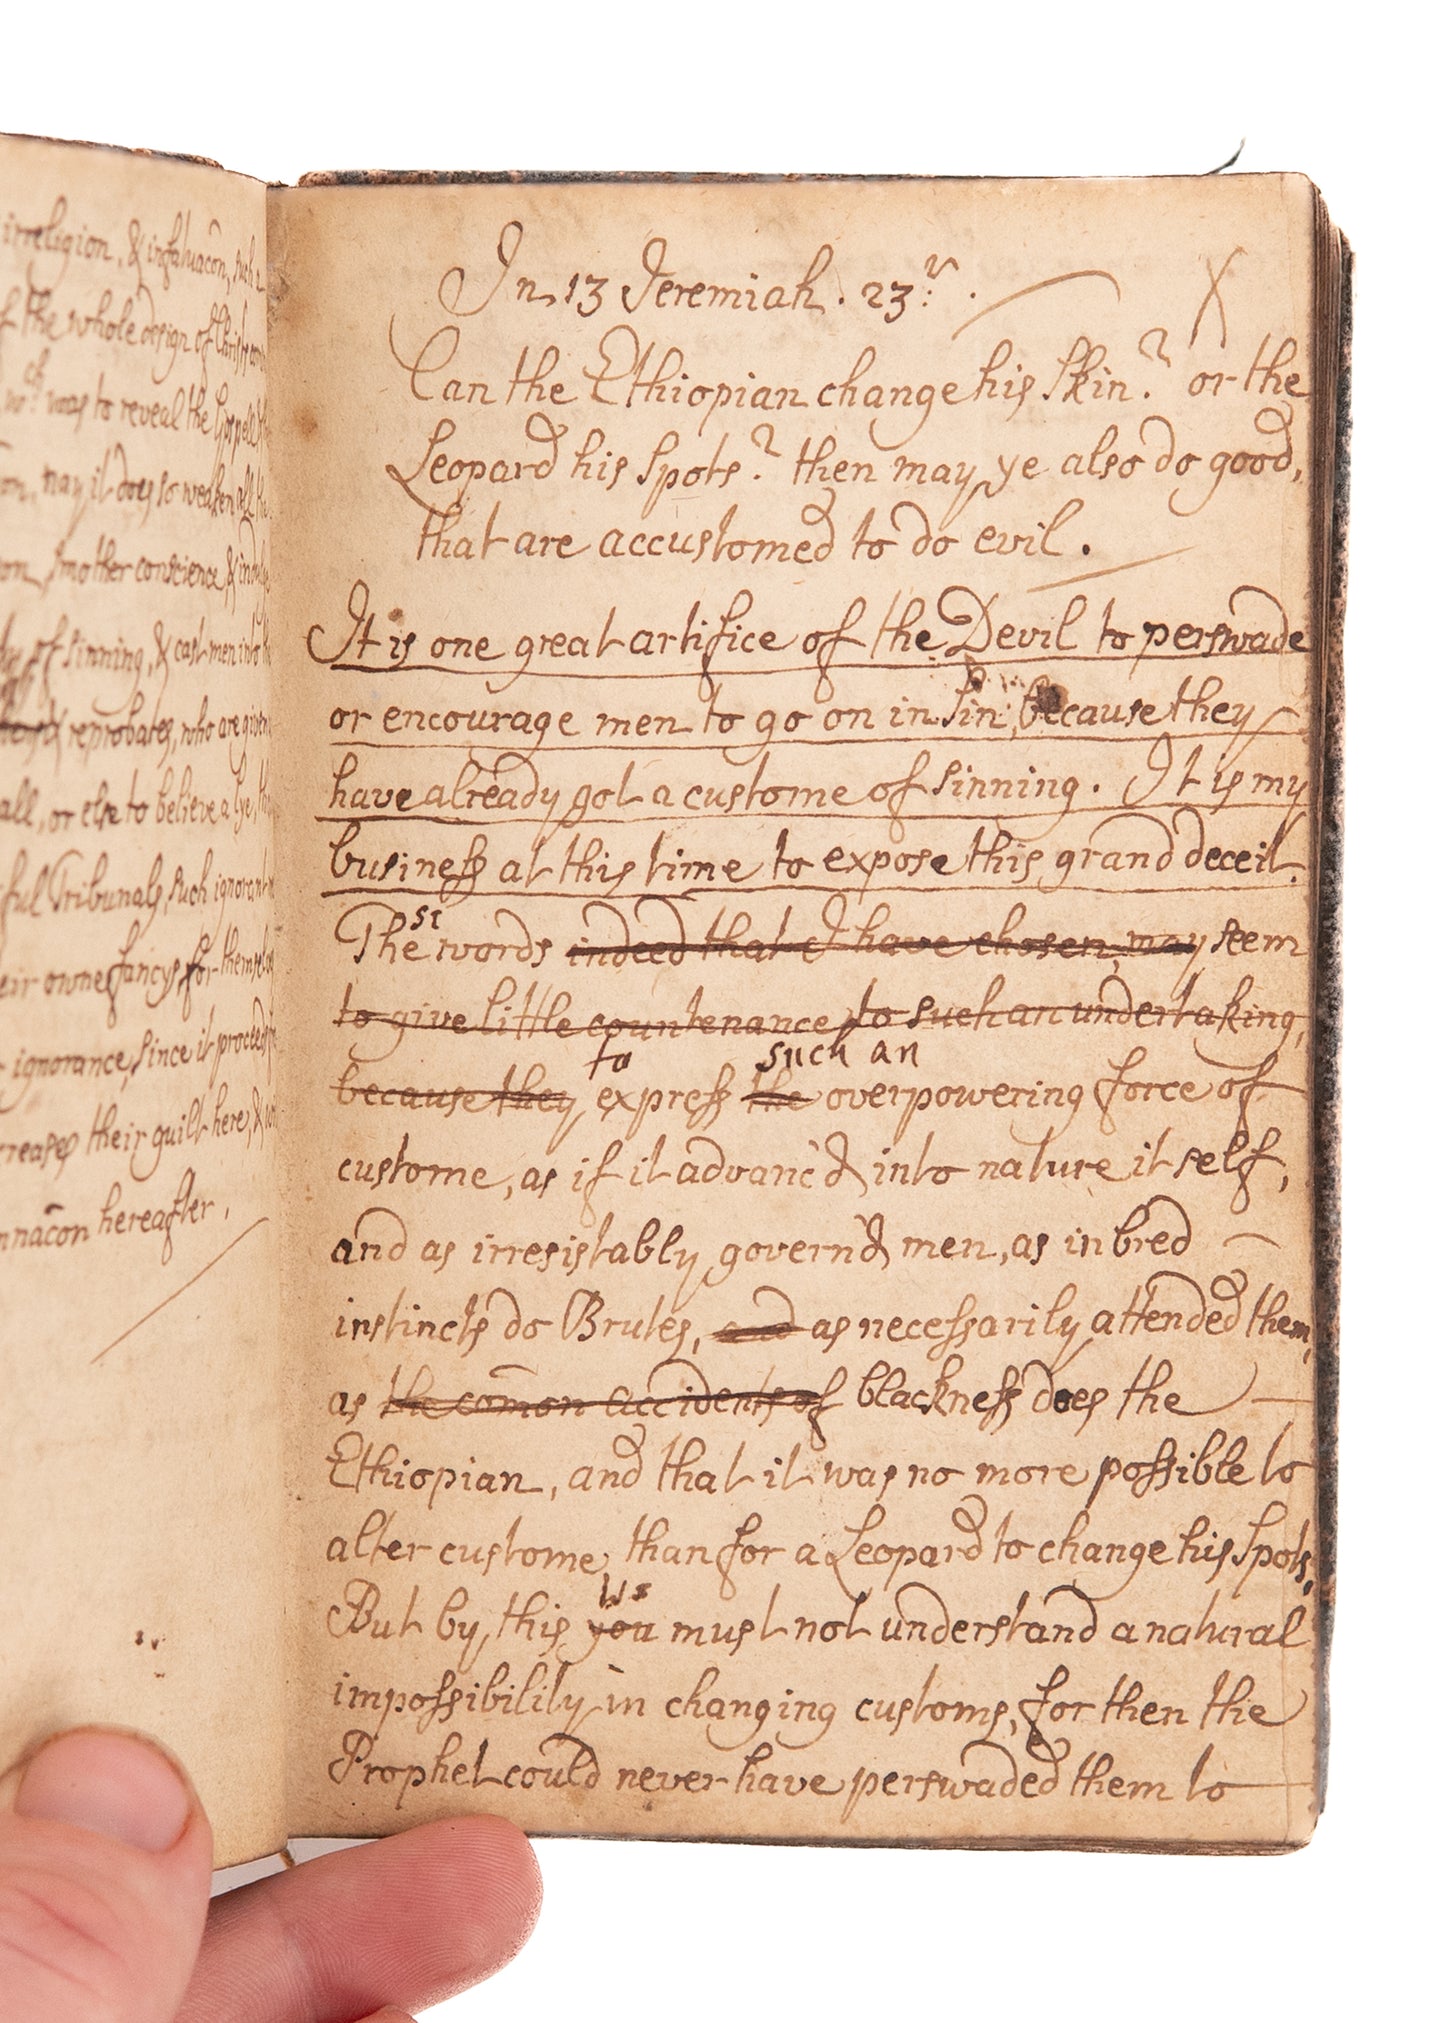 irreligion, & infatuacõn, such a
of the whole design of Christs
wch was to reveal the Gospell
on, nay it does so weaken all the
on, smother conscience &
of sinning, & cast men into
reprobates, who are given
all, or else to believe a lye,
full Tribunals, such ignorant
eir owne fancys for themselves
ignorance, since it proceeds
creases their guilt here, &
mnacõn hereafter.
In 13 Jeremiah . 23: v. X
Can the Ethiopian change his Skin? or the
Leopard his Spots? then may ye also do good,
that are accustomed to do evil.
It is one great artifice of the Devil to perswade
or encourage men to go on in Sin, because they
have already got a custome of sinning. It is my
business at this time to expose this grand deceit.
Thesr words indeed that I have chosen, may seem
to give little countenance to such an undertaking,
to such an
because they express the overpowering force of
custome, as if it advanc'd into nature it self,
and as irresistably govern'd men, as inbred
instincts do Brutes, and as necessarily attended them,
as the com̃on accidents of blackness does the
Ethiopian, and that it was no more possible to
alter custome, than for a Leopard to change his Spots.
we
But by this you must not understand a natural
impossibility in changing customs, for then the
Prophet could never have perswaded them to